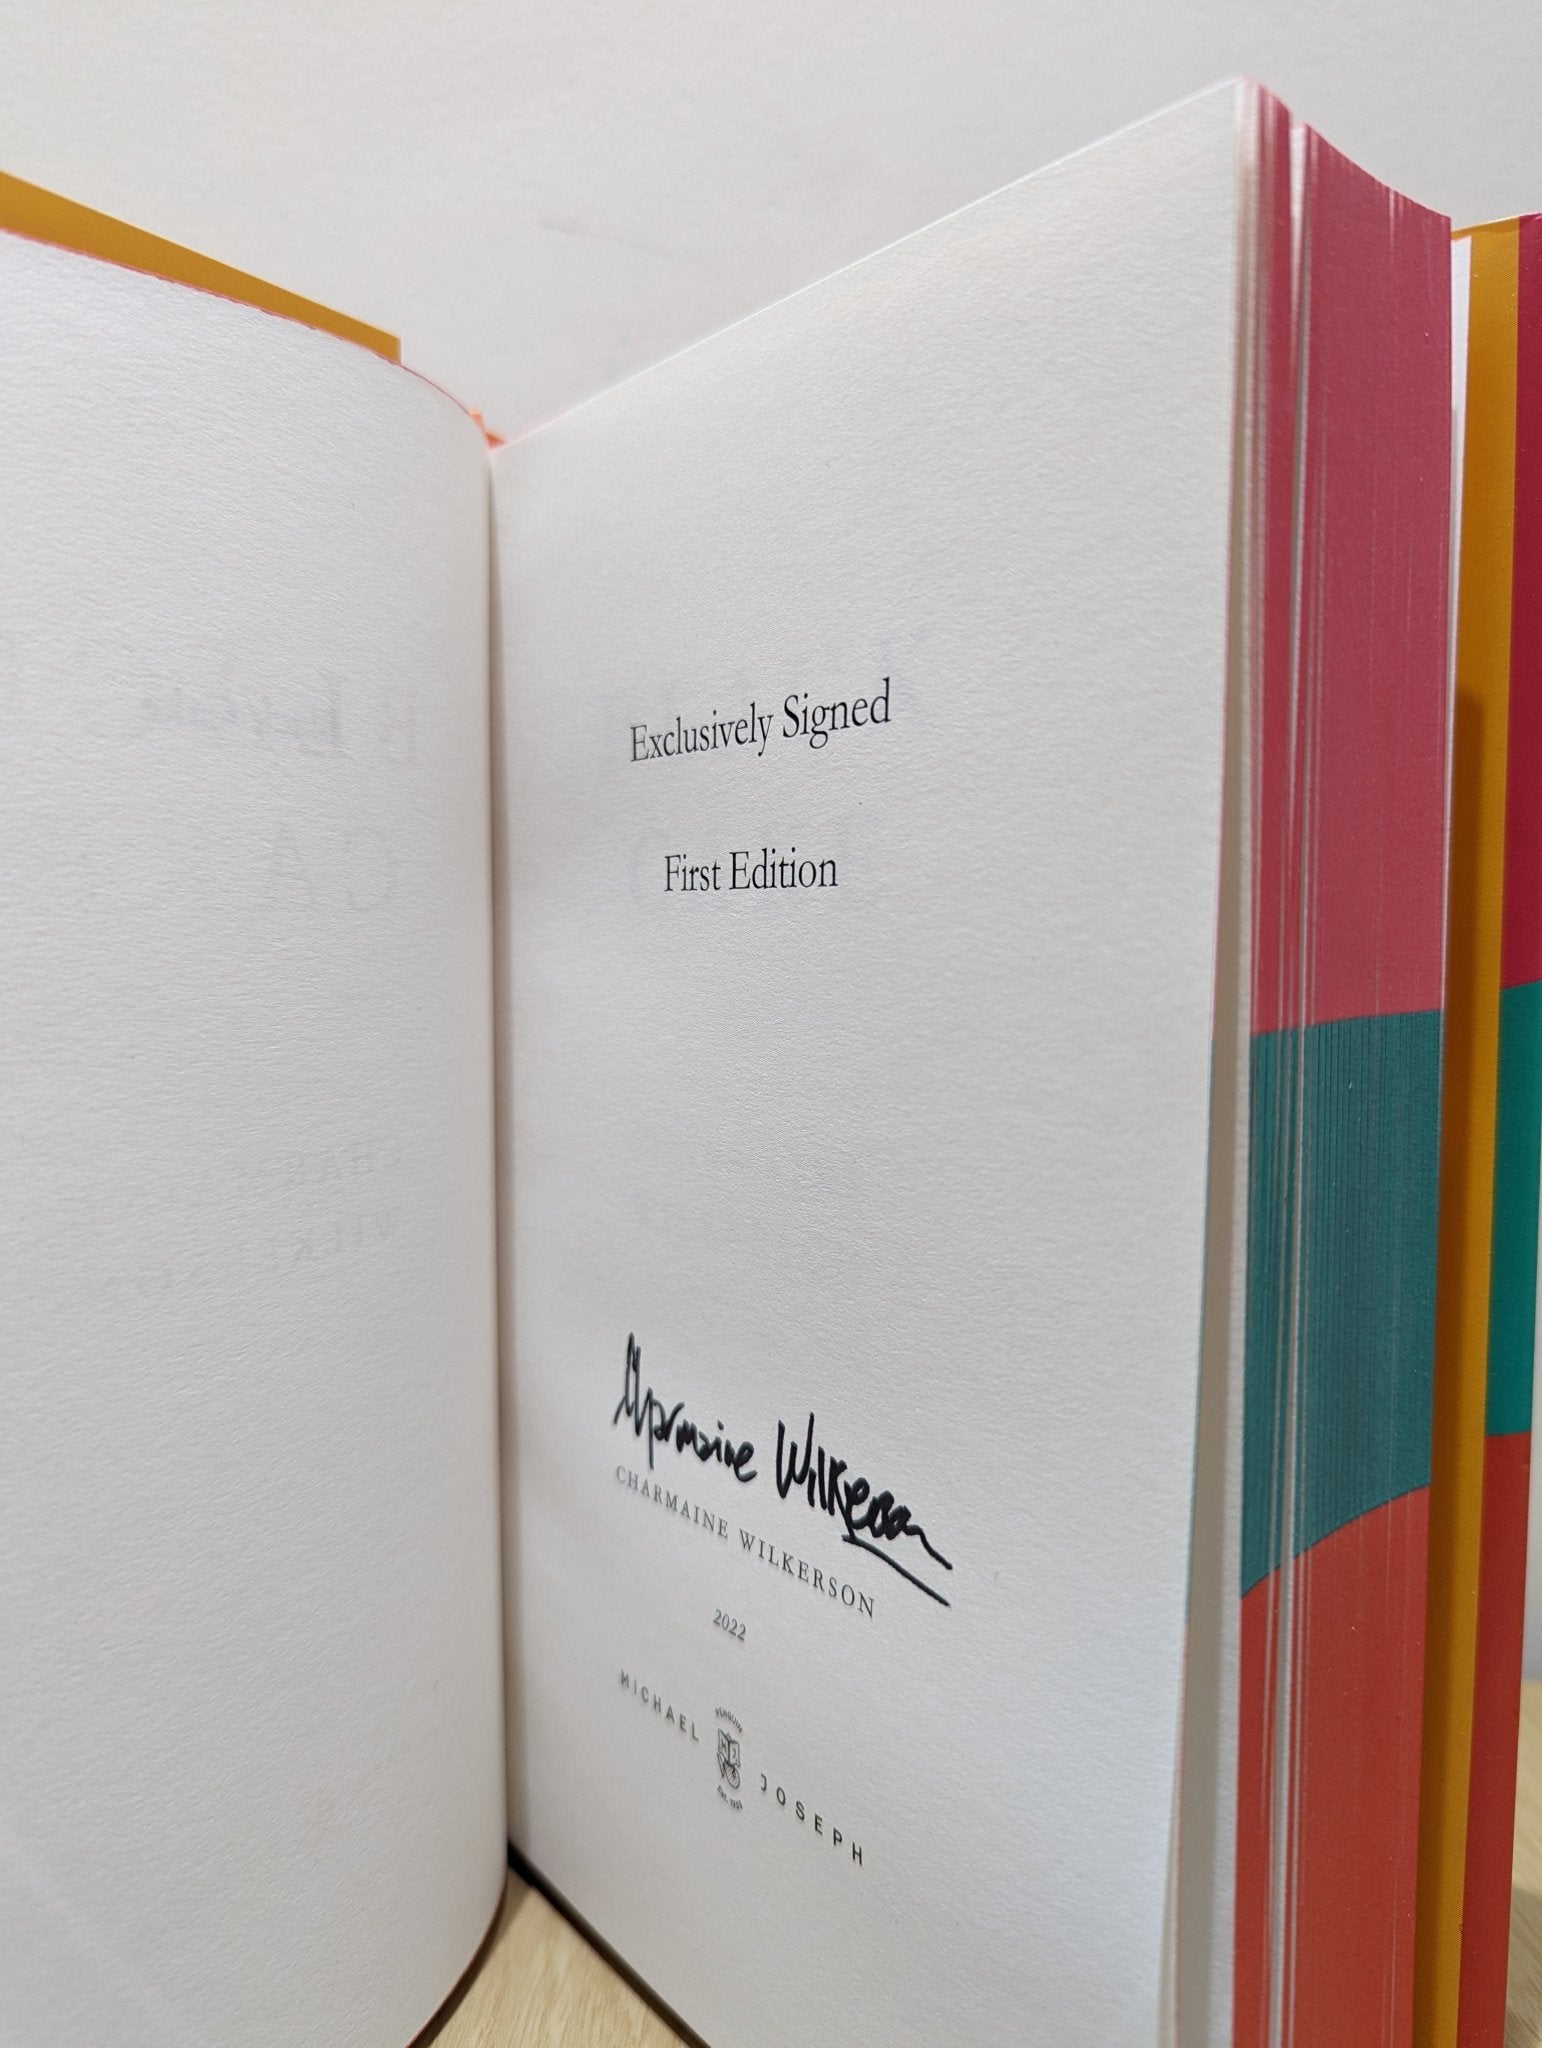 Exclusively Signed
First Edition
Charmaine Wilkerson
CHARMAINE WILKERSON
2022
MICHAEL JOSEPH
PENGUIN
MJ
EST. 1935